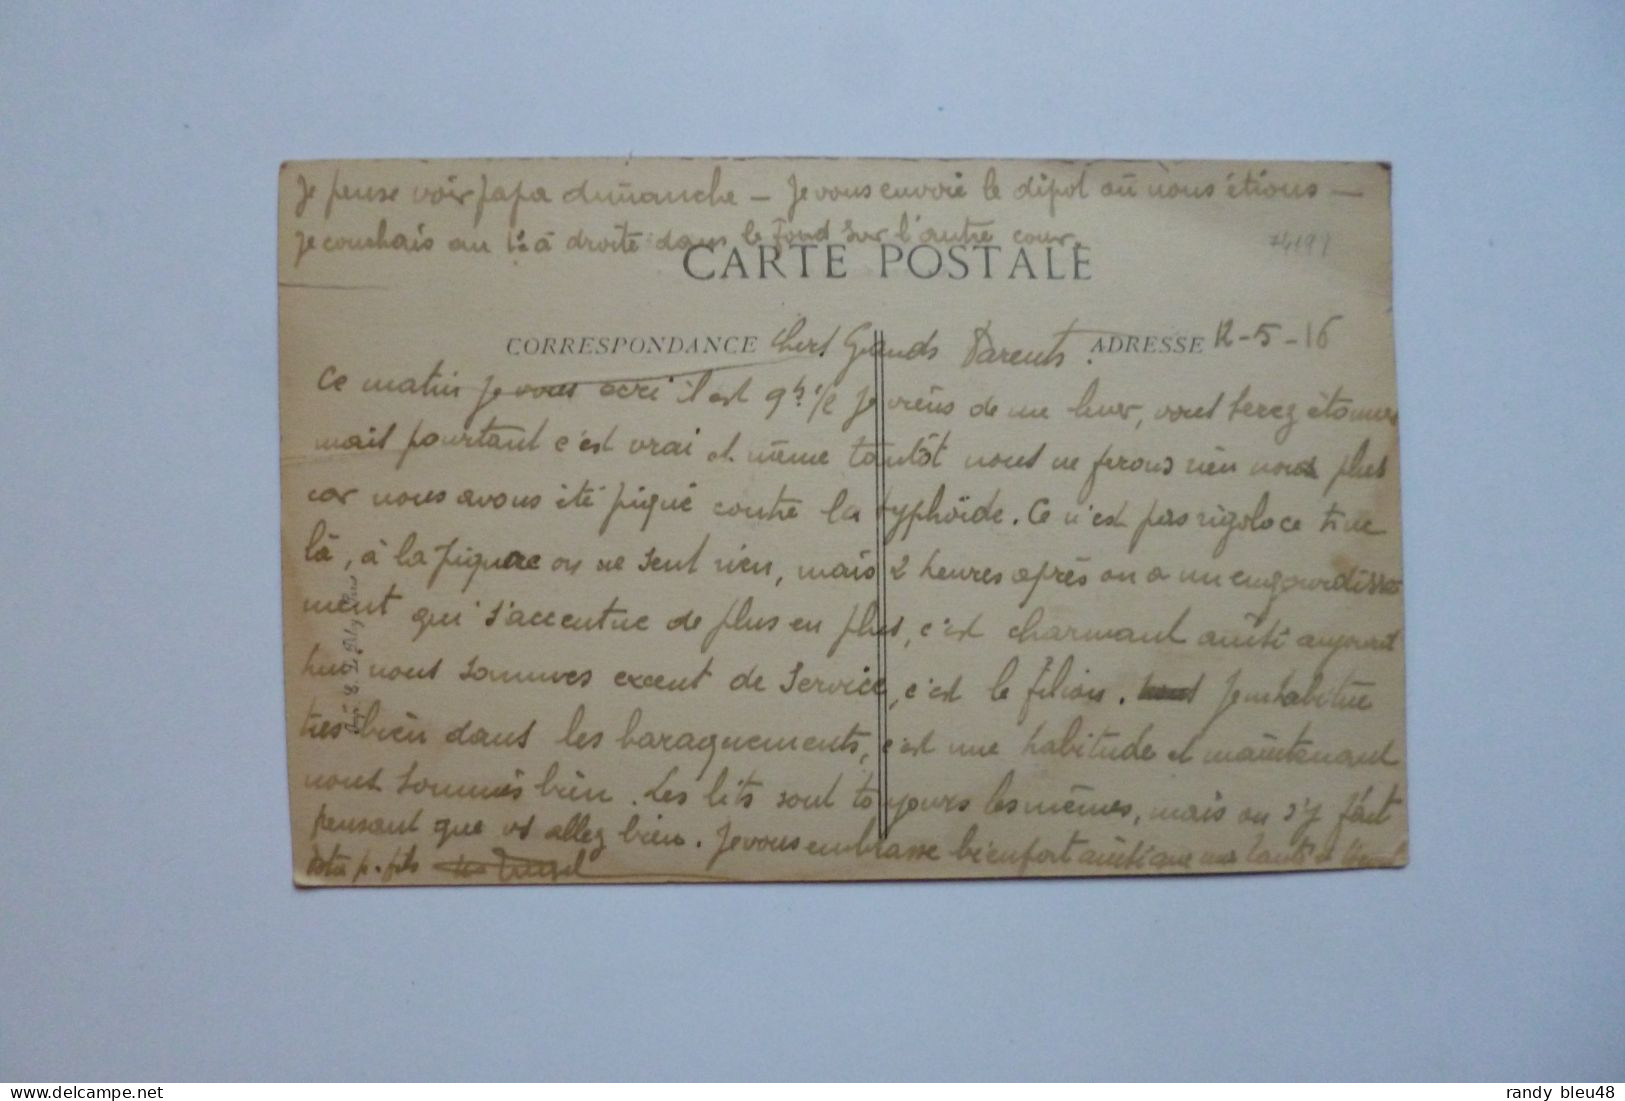 Je pense voir papa dimanche — Je vous envoie le dépot où nous étions —
Je couchais au 1er à droite dans le Fond sur l'autre cour.
74199
CARTE POSTALE
CORRESPONDANCE Chers Grands Parents. ADRESSE 12-5-16
Ce matin je vous écri il est 9h 1/2 je viens de me lever, vous serez étonner
mais pourtant c'est vrai et même tantôt nous ne ferons rien non plus
car nous avons été piqué contre la typhoïde. Ce n'est pas rigolo ce truc
là, à la piqure on ne sent rien, mais 2 heures après on a un engourdisse
ment qui s'accentue de plus en plus, c'est charmant aussi aujourd
hui nous sommes exent de service, c'est le filion. Je m'habitue
très bien dans les baraquements, c'est une habitude et maintenant
nous sommes bien. Les lits sont toujours les mêmes, mais on s'y fait
pensant que vs allez bien. Je vous embrasse bien fort ainsi que ma tante et
Votre p. fils
delcampe.net
randy_bleu48